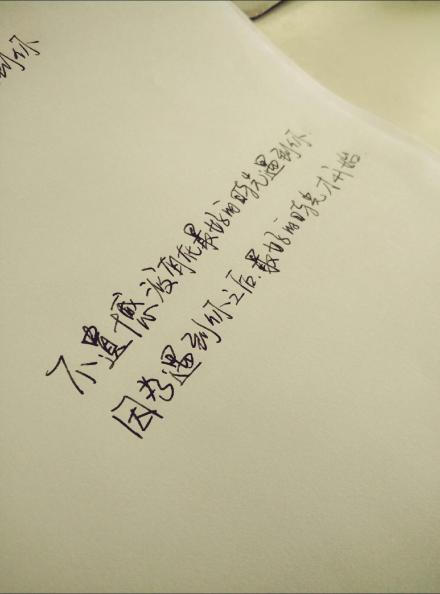 到你
不遗憾没有在最好的时光遇到你.
因为遇到你之后.最好的时光才开始.